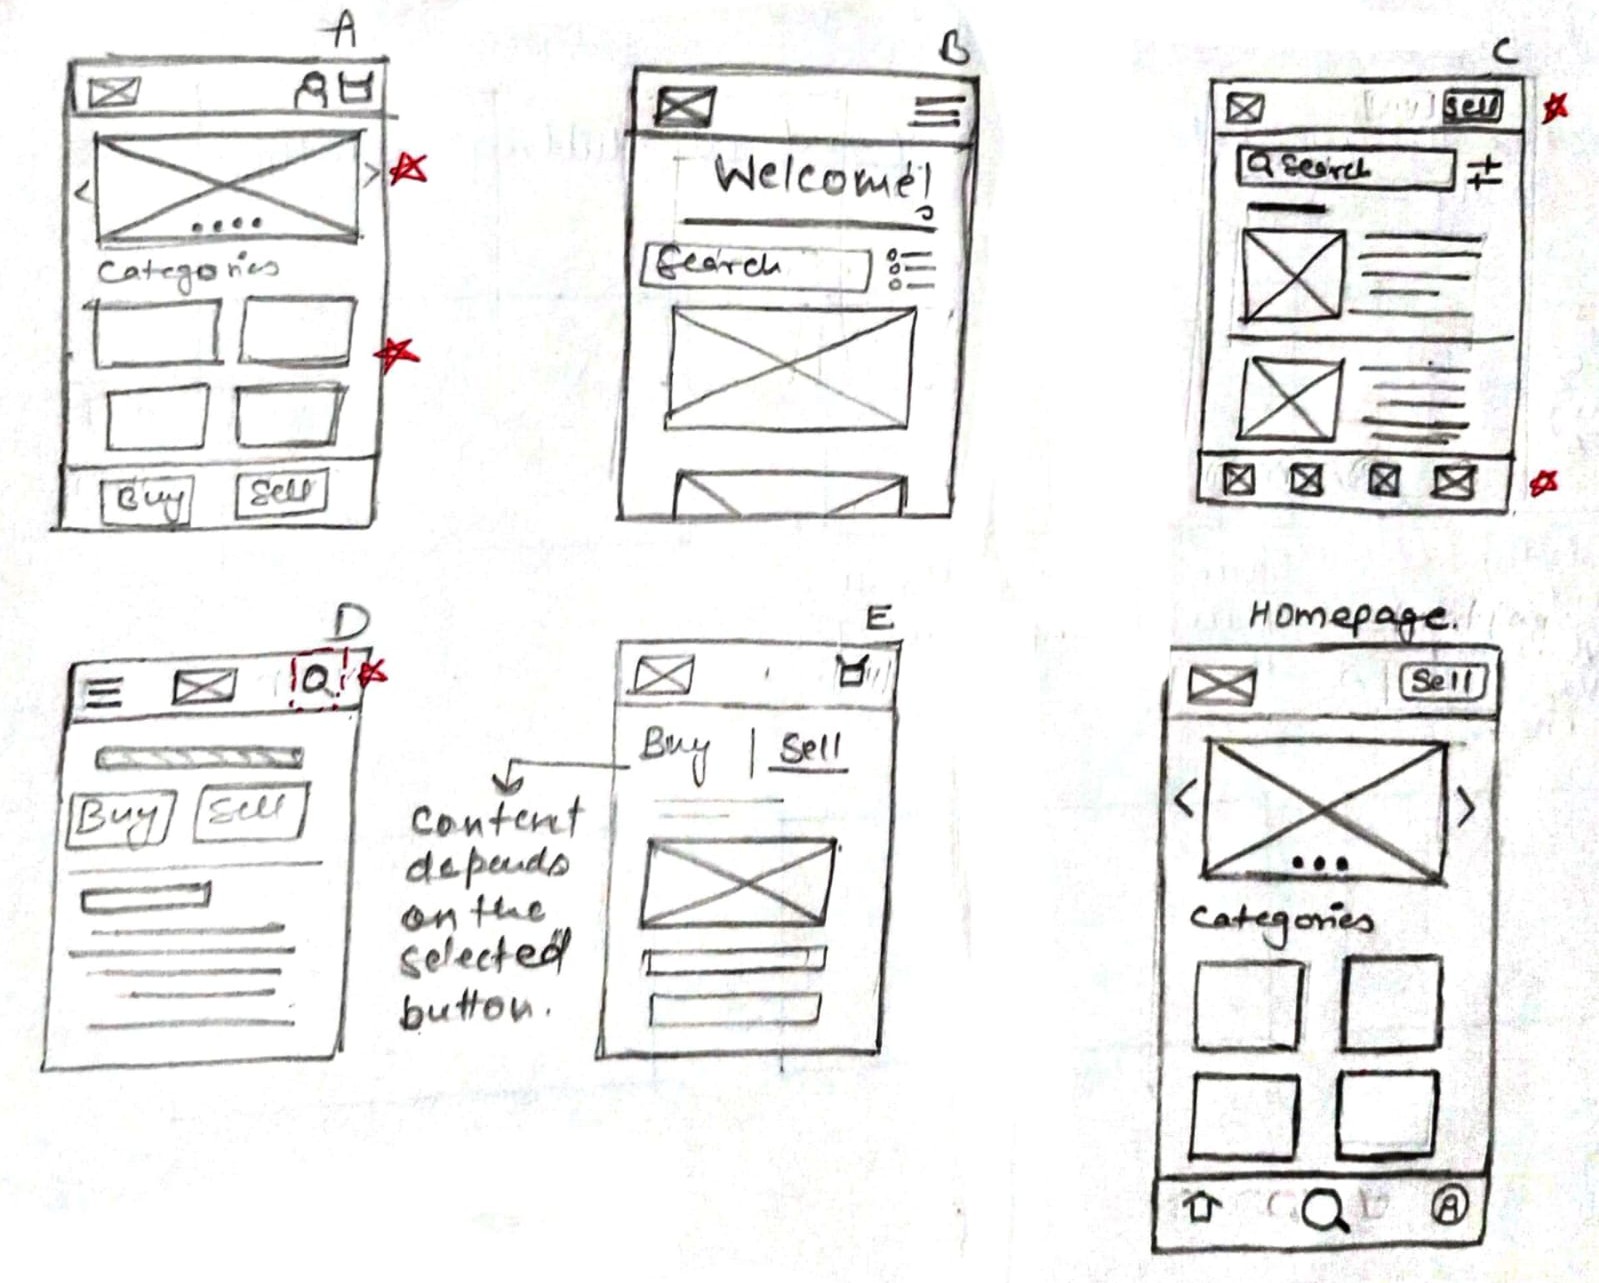 A
Categories
Buy
Sell
B
Welcome!
Search
C
Sell
Search
D
Buy
Sell
E
Buy | Sell
Content
depends
on the
selected
button.
Homepage.
Sell
Categories
A